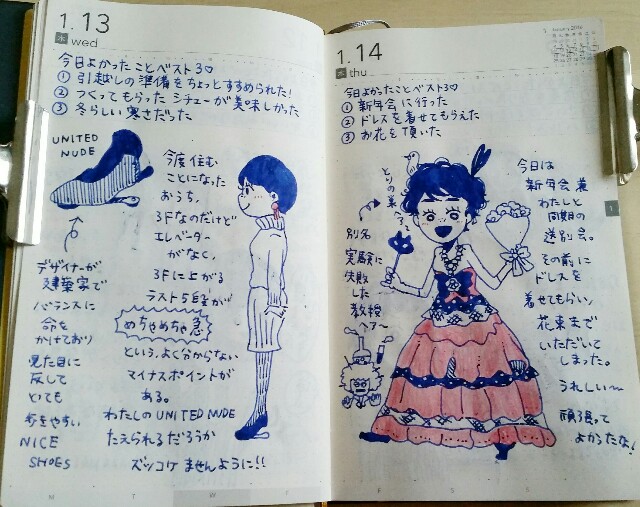 1.13
水 wed
今日よかったことベスト3♡
① 引越しの準備をちょっとすすめられた!
② つくってもらった シチューが美味しかった
③ 冬らしい寒さだった
UNITED
NUDE
デザイナーが
建築家で
バランスに
命を
かけており
見た目に
反して
とても
歩きやすい
NICE
SHOES
今度住む
ことになった
おうち、
3Fなのだけど
エレベーター
がなく、
3Fに上がる
ラスト5段が
めちゃめちゃ急
という、よく分からない
マイナスポイントが
ある。
わたしの UNITED NUDE
たえられるだろうか
ズッコケませんように!!
M T W F
1.14
木 thu
January 2016
今日よかったことベスト3♡
① 新年会に行った
② ドレスを着せてもらえた
③ お花を頂いた
とりの巣
ヘアー
別名
実験に
失敗
した
教授
ヘアー
今日は
新年会兼
わたしと
同期の
送別会。
その前に
ドレスを
着せてもらい、
花束まで
いただいて
しまった。
うれしい〜
頑張って
よかったな!
1